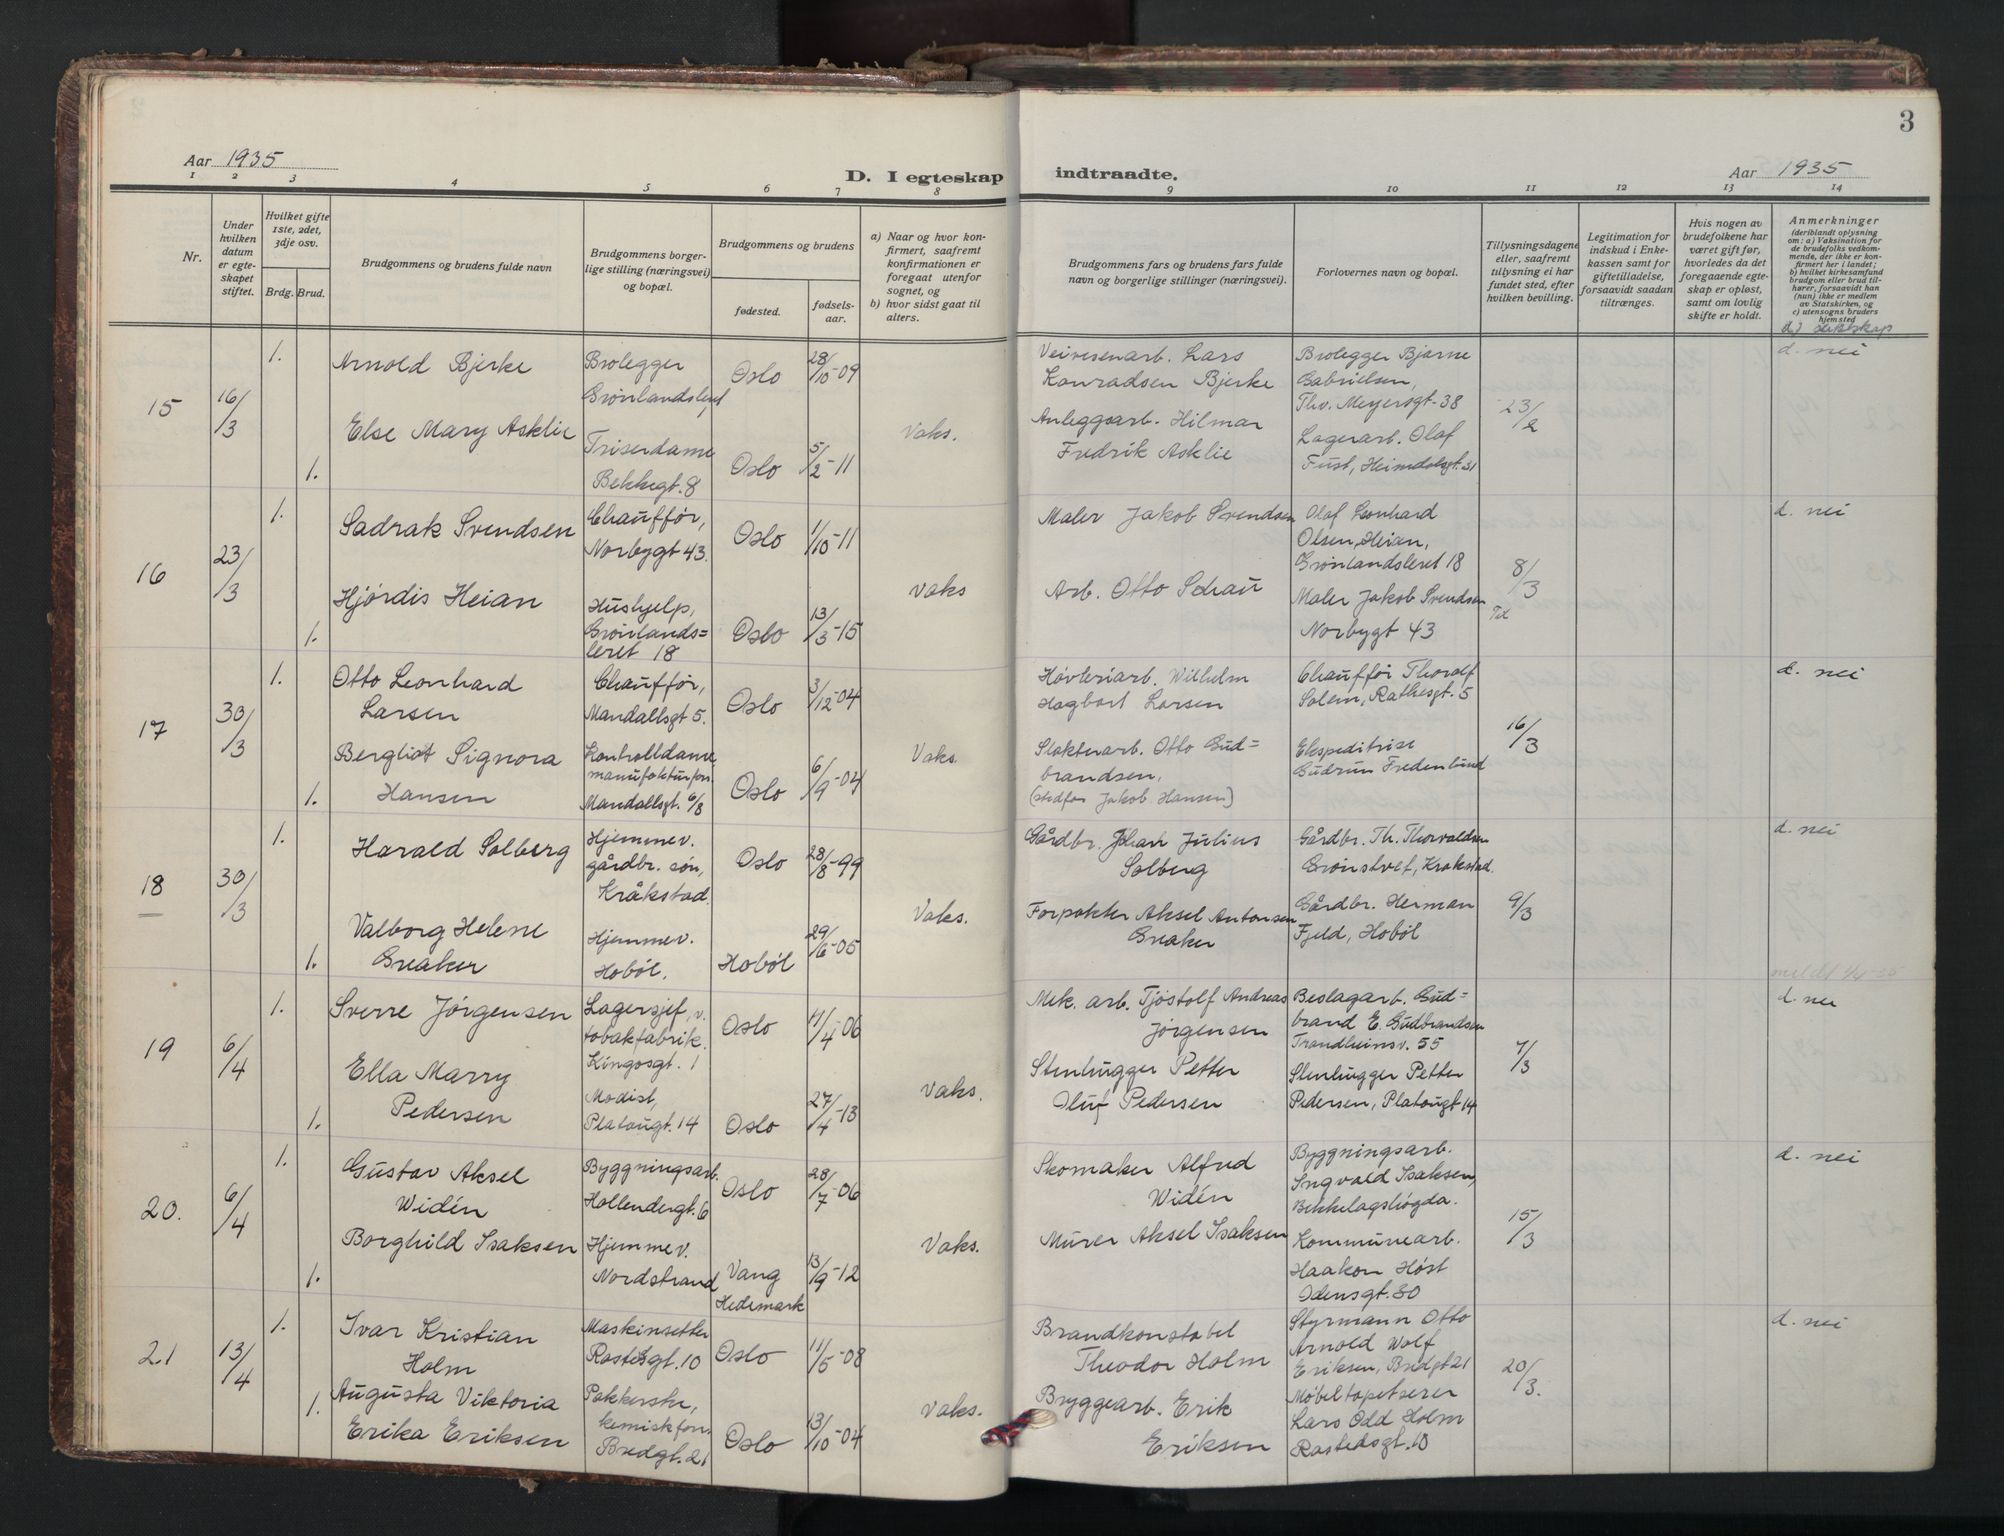 3
Aar 1935
D. I egteskap indtraadte.
Aar 1935
1 2 3 4 5 6 7 8 9 10 11 12 13 14
Nr.
Under hvilken datum er egteskapet stiftet.
Hvilket gifte 1ste, 2det, 3dje osv.
Brdg. Brud.
Brudgommens og brudens fulde navn
Brudgommens borgerlige stilling (næringsvei) og bopæl.
Brudgommens og brudens
fødested.
fødselsaar.
a) Naar og hvor konfirmert, saafremt konfirmationen er foregaat utenfor sognet, og
b) hvor sidst gaat til alters.
Brudgommens fars og brudens fars fulde navn og borgerlige stillinger (næringsvei).
Forlovernes navn og bopæl.
Tillysningsdagene eller, saafremt tillysning ei har fundet sted, efter hvilken bevilling.
Legitimation for indskud i Enkekassen samt for giftetilladelse, forsaavidt saadan tiltrænges.
Hvis nogen av brudefolkene har været gift før, hvorledes da det foregaaende egteskap er opløst, samt om lovlig skifte er holdt.
Anmerkninger
(deriblandt oplysning om: a) Vaksination for de brudefolks vedkommende, der ikke er konfirmert her i landet;
b) hvilket kirkesamfund brudgom eller brud tilhører, forsaavidt han (hun) ikke er medlem av Statskirken, og
c) utensogns bruders hjemsted
d) slektskap
15
16/3
1.
Arnold Bjerke
Brolegger
Grønlandsleret
Oslo
28/10-09
Veivesenarb. Lars
Konradsen Bjerke
Brolegger Bjarne
Gabrielsen,
Thv. Meyersgt. 38
23/2
d. nei
1.
Else Mary Asklie
Friserdame
Bekkegt. 8
Oslo
5/2-11
Vaks.
Anleggsarb. Hilmar
Fredrik Asklie
Lagerarb. Olaf
Fust, Heimdalsgt. 31
16
23/3
1.
Sadrak Svendsen
Chauffør,
Norbygt 43.
Oslo
1/10-11
Maler Jakob Svendsen
Olaf Leonhard
Olsen, Heian,
Grønlandsleret 18
8/3
d. nei
1.
Hjørdis Heian
Hushjelp,
Grønlands=
leret 18
Oslo
13/3-15
Vaks
Arb. Otto Schau
Maler Jakob Svendsen
Norbygt 43
17
30/3
1.
Otto Leonhard
Larsen
Chauffør,
Mandallsgt 5.
Oslo
3/12-04
Høvleriarb. Wilhelm
Hagbart Larsen
Chauffør Thoralf
Solem, Rathesgt. 5
16/3
d. nei
1.
Bergliot Signora
Hansen
Kontrolldame
manufakturforr.
Mandallsgt. 6/8
Oslo
6/9-04
Vaks.
Slakterarb. Otto Gud=
brandsen,
(stedfar Jakob Hansen)
Ekspeditrise
Gudrun Fredenlund
18
30/3
1.
Harald Solberg
Hjemmev.
gårdbr. søn,
Kråkstad.
Oslo
28/8-99
Gårdbr. Johan Julius
Solberg
Gårdbr. Th. Thorvaldsen
Grønstvet, Krakstad.
9/3
d. nei
1.
Valborg Helene
Greaker
Hjemmev.
Hobøl.
Hobøl
29/6-05
Vaks.
Forpakter Aksel Antonsen
Greaker
Gårdbr. Herman
Fjeld, Hobøl
19
6/4
1.
Sverre Jørgensen
Lagersjef, v.
tobakfabrik.
Kingosgt. 1
Oslo
11/4-06
Mek. arb. Tjøstolf Andreas
Jørgensen
Beslagarb. Gud=
brand E. Gudbrandsen
Trondheimsv. 55
7/3
d. nei
1.
Ella Marry
Pedersen
Modist,
Platougt. 14
Oslo
27/4-13
Vaks.
Stenhugger Petter
Oluf Pedersen
Stenhugger Petter
Pedersen, Platougt 14
20.
6/4
1.
Gustav Aksel
Widén
Byggningsarb.
Hollendergt. 6
Oslo
28/7-06
Skomaker Alfred
Widén
Byggningsarb.
Ingvald Isaksen,
Bekkelagshøgda.
15/3
d. nei
1.
Borghild Isaksen
Hjemmev.
Nordstrand
Vang
Hedemark
13/9-12
Vaks.
Murer Aksel Isaksen
Kommunearb.
Haakon Høst
Odensgt. 30
21
13/4
1.
Ivar Kristian
Holm
Maskinsetter
Rastedsgt. 10
Oslo
11/5-08
Brandkonstabel
Theodor Holm
Styrmann Otto
Arnold Wolf
Eriksen, Bredgt 21
20/3.
d. nei
1.
Augusta Viktoria
Erika Eriksen
Pakkerske,
kemisk forr.
Bredgt. 21
Oslo
13/10-04
Vaks.
Bryggearb. Erik
Eriksen
Møbeltapetserer
Lars Odd Holm
Rastedsgt. 10